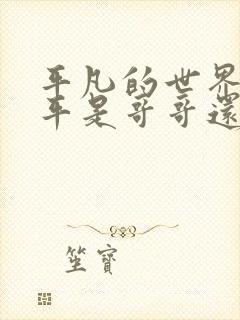 平凡的世界
平是哥哥還
坐寶